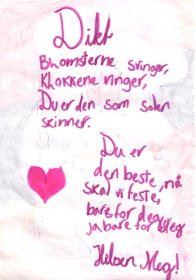 Dikt
Blomsterne svinger,
Klokkene ringer,
Du er den som solen
skinner.
Du er
den beste, nå
skal vi feste,
bare for deg
ja bare for deg
Hilsen Meg!